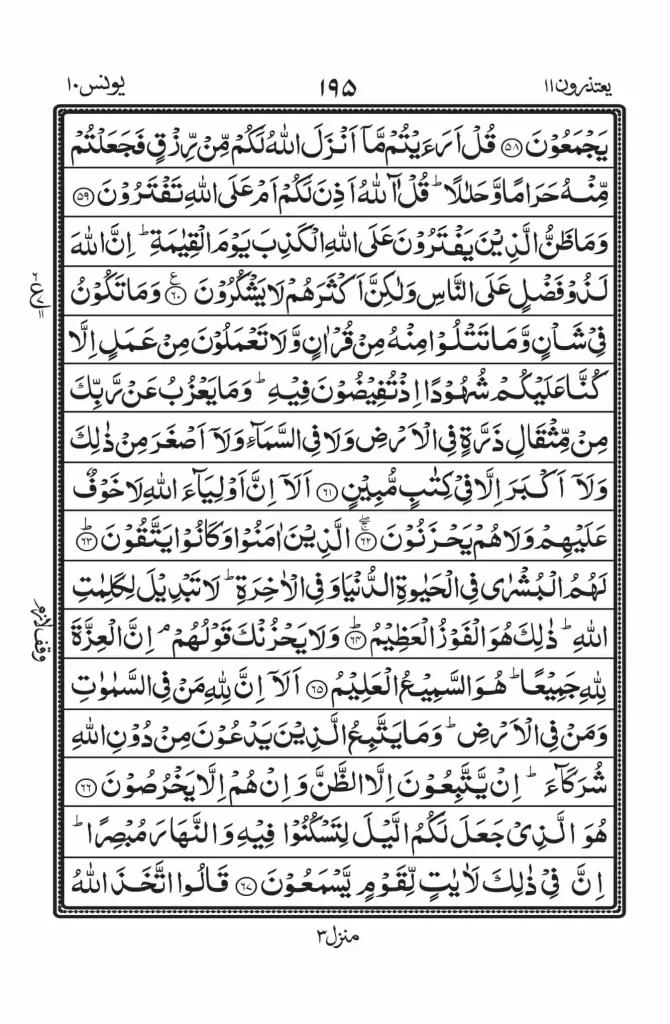 یعتذرون۱۱ ۱۹۵ یونس۱۰
يَجۡمَعُوۡنَ ﴿۵۸﴾ قُلۡ اَرَءَيۡتُمۡ مَّاۤ اَنۡزَلَ اللّٰهُ لَـكُمۡ مِّنۡ رِّزۡقٍ فَجَعَلۡتُمۡ
مِّنۡهُ حَرَامًا وَّحَلٰلًا ؕ قُلۡ آٰللّٰهُ اَذِنَ لَـكُمۡ اَمۡ عَلَى اللّٰهِ تَفۡتَرُوۡنَ ﴿۵۹﴾
وَمَا ظَنُّ الَّذِيۡنَ يَفۡتَرُوۡنَ عَلَى اللّٰهِ الۡـكَذِبَ يَوۡمَ الۡقِيٰمَةِ ؕ اِنَّ اللّٰهَ
لَذُوۡ فَضۡلٍ عَلَى النَّاسِ وَلٰـكِنَّ اَكۡثَرَهُمۡ لَا يَشۡكُرُوۡنَ ﴿۶۰﴾ ع وَمَا تَكُوۡنُ
فِىۡ شَاۡنٍ وَّمَا تَتۡلُوۡا مِنۡهُ مِنۡ قُرۡاٰنٍ وَّلَا تَعۡمَلُوۡنَ مِنۡ عَمَلٍ اِلَّا
كُنَّا عَلَيۡكُمۡ شُهُوۡدًا اِذۡ تُفِيۡضُوۡنَ فِيۡهِ ؕ وَمَا يَعۡزُبُ عَنۡ رَّبِّكَ
مِنۡ مِّثۡقَالِ ذَرَّةٍ فِى الۡاَرۡضِ وَلَا فِى السَّمَآءِ وَلَاۤ اَصۡغَرَ مِنۡ ذٰلِكَ
وَلَاۤ اَكۡبَرَ اِلَّا فِىۡ كِتٰبٍ مُّبِيۡنٍ ﴿۶۱﴾ اَلَاۤ اِنَّ اَوۡلِيَآءَ اللّٰهِ لَا خَوۡفٌ
عَلَيۡهِمۡ وَلَا هُمۡ يَحۡزَنُوۡنَ ﴿۶۲﴾ ۚۖ الَّذِيۡنَ اٰمَنُوۡا وَكَانُوۡا يَتَّقُوۡنَ ﴿۶۳﴾ ؕ
لَهُمُ الۡبُشۡرٰى فِى الۡحَيٰوةِ الدُّنۡيَا وَفِى الۡاٰخِرَةِ ؕ لَا تَبۡدِيۡلَ لِـكَلِمٰتِ
اللّٰهِ ؕ ذٰلِكَ هُوَ الۡفَوۡزُ الۡعَظِيۡمُ ﴿۶۴﴾ ؕ وَلَا يَحۡزُنۡكَ قَوۡلُهُمۡ ۘ اِنَّ الۡعِزَّةَ
لِلّٰهِ جَمِيۡعًا ؕ هُوَ السَّمِيۡعُ الۡعَلِيۡمُ ﴿۶۵﴾ اَلَاۤ اِنَّ لِلّٰهِ مَنۡ فِى السَّمٰوٰتِ
وَمَنۡ فِى الۡاَرۡضِ ؕ وَمَا يَتَّبِعُ الَّذِيۡنَ يَدۡعُوۡنَ مِنۡ دُوۡنِ اللّٰهِ
شُرَكَآءَ ؕ اِنۡ يَّتَّبِعُوۡنَ اِلَّا الظَّنَّ وَاِنۡ هُمۡ اِلَّا يَخۡرُصُوۡنَ ﴿۶۶﴾
هُوَ الَّذِىۡ جَعَلَ لَـكُمُ الَّيۡلَ لِتَسۡكُنُوۡا فِيۡهِ وَالنَّهَارَ مُبۡصِرًا ؕ
اِنَّ فِىۡ ذٰلِكَ لَاٰيٰتٍ لِّقَوۡمٍ يَّسۡمَعُوۡنَ ﴿۶۷﴾ قَالُوا اتَّخَذَ اللّٰهُ
وقف لازم
منزل۳